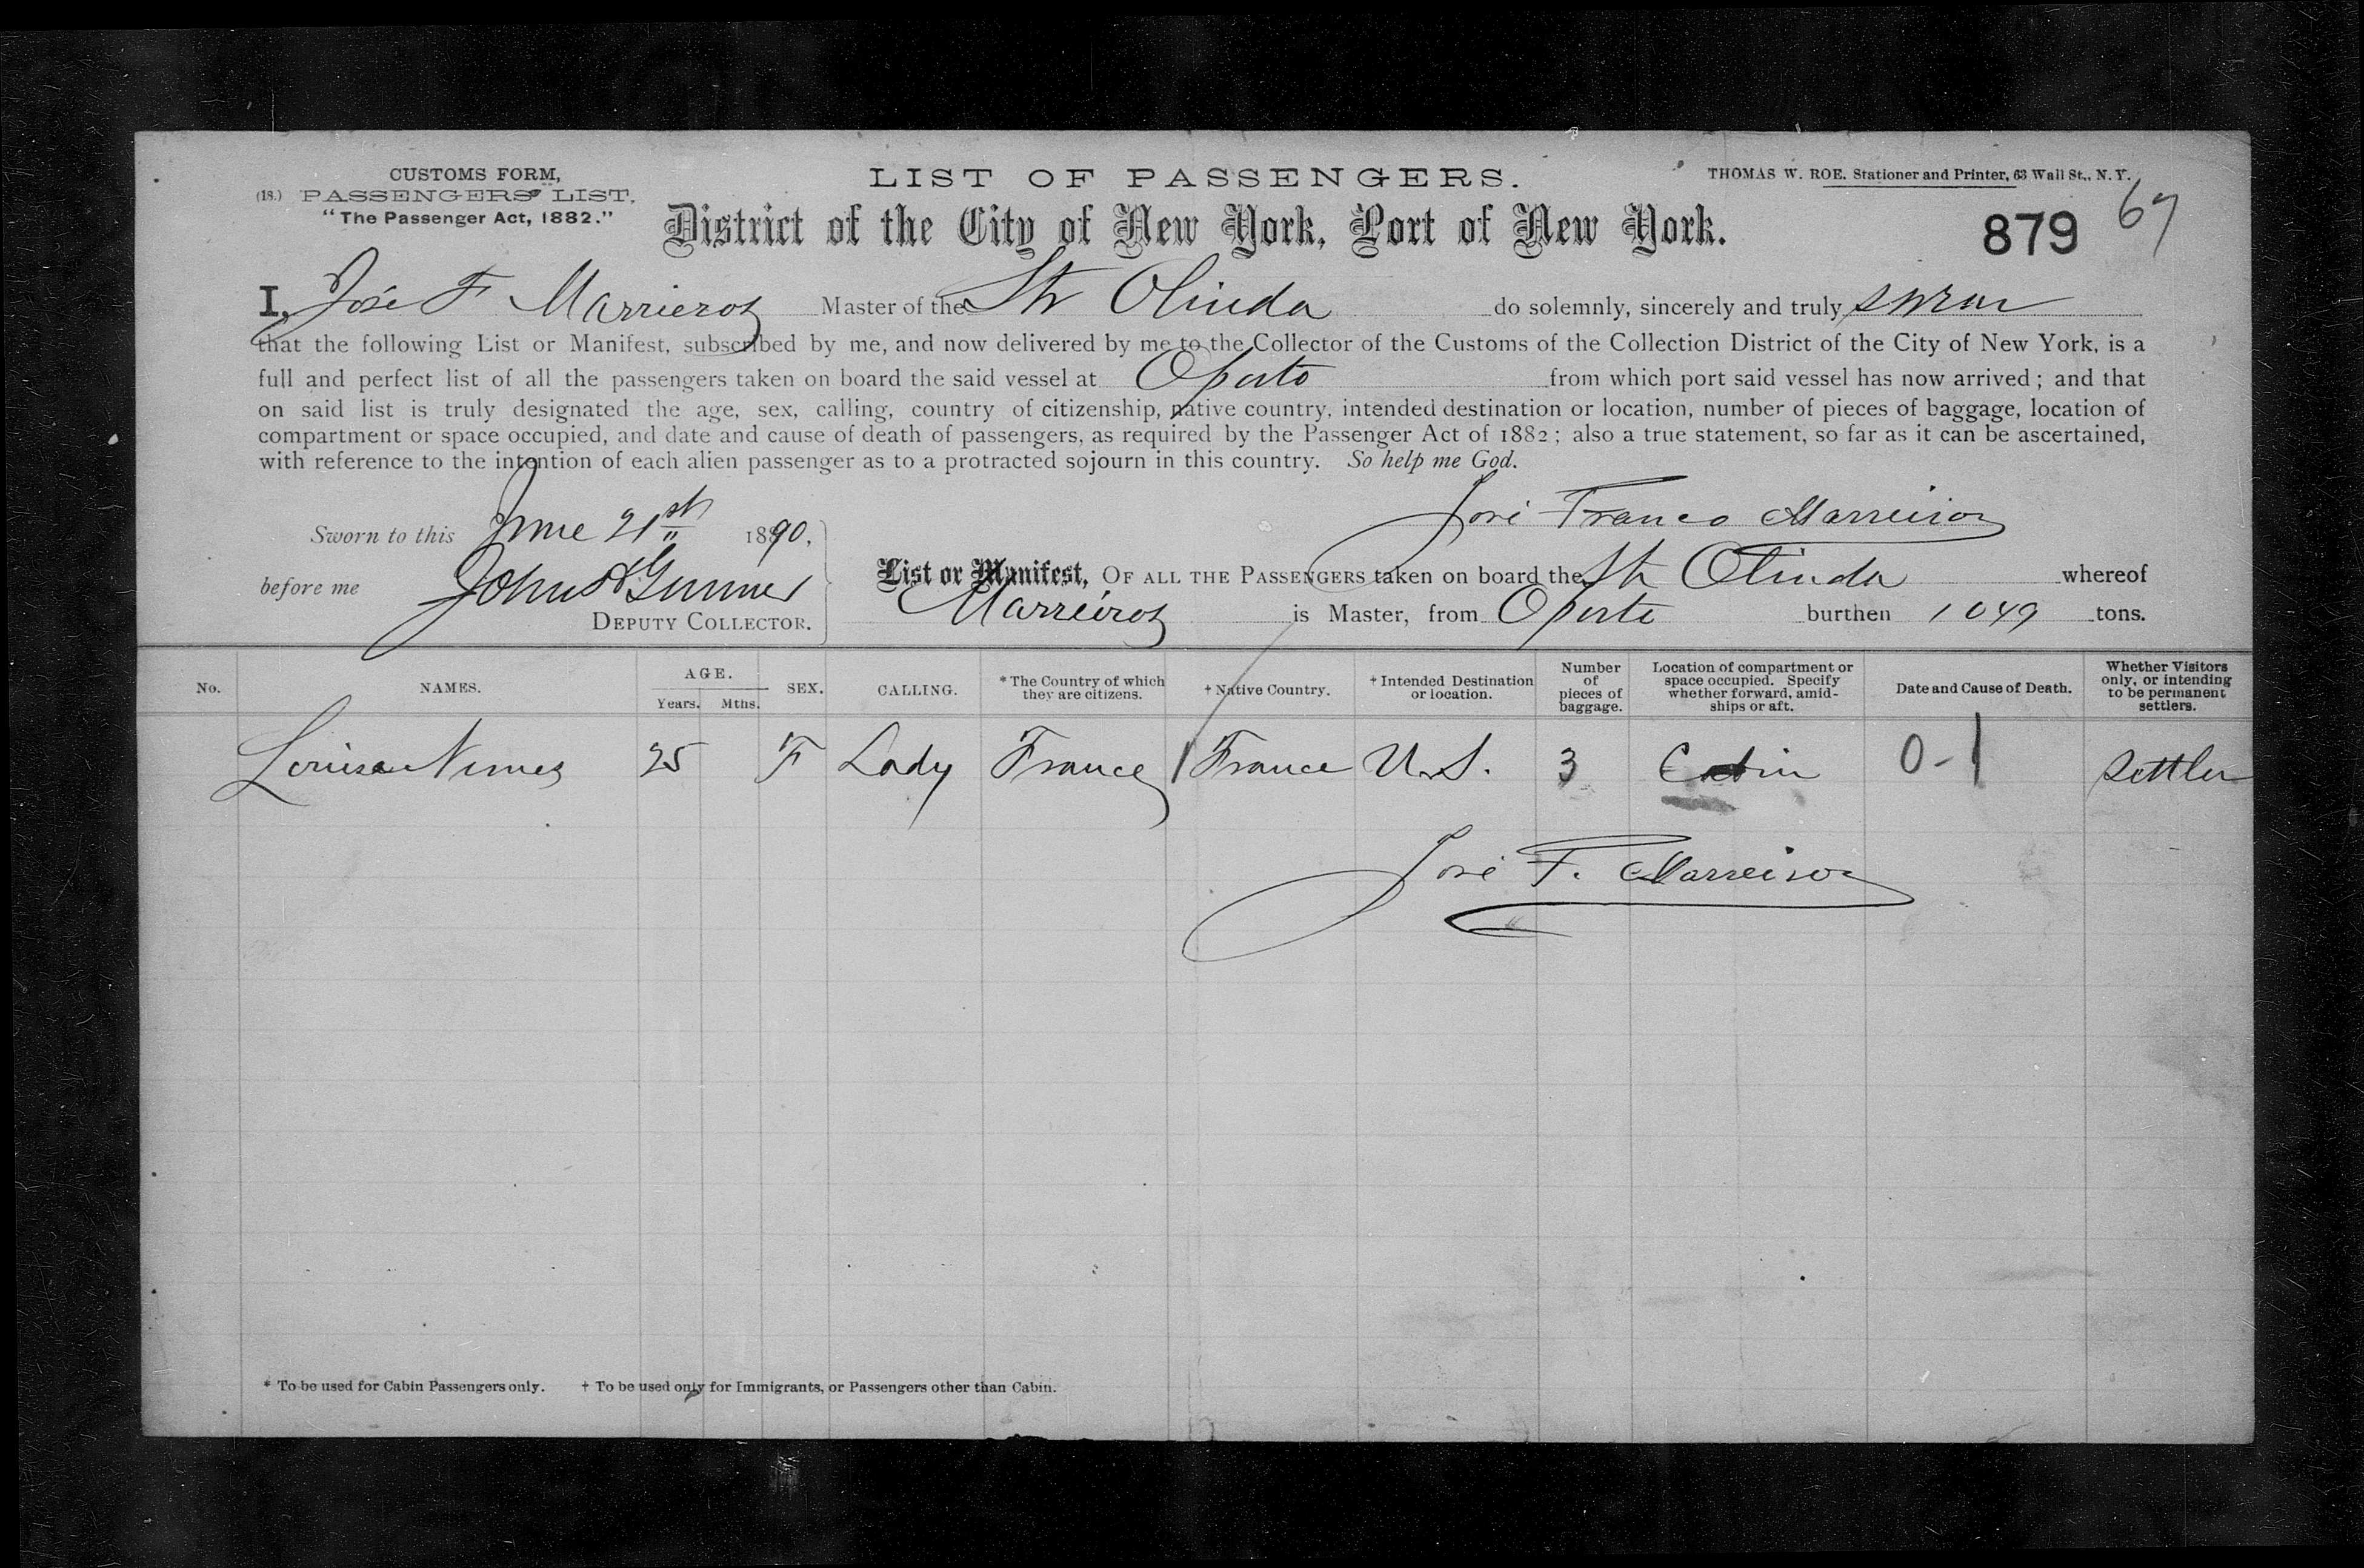 CUSTOMS FORM,
(18.) PASSENGERS' LIST,
"The Passenger Act, 1882."
LIST OF PASSENGERS.
THOMAS W. ROE. Stationer and Printer, 63 Wall St., N. Y.
District of the City of New York, Port of New York.
879 67
I, José F Marrieros Master of the Str Olinda do solemnly, sincerely and truly swear
that the following List or Manifest, subscribed by me, and now delivered by me to the Collector of the Customs of the Collection District of the City of New York, is a
full and perfect list of all the passengers taken on board the said vessel at Oporto from which port said vessel has now arrived; and that
on said list is truly designated the age, sex, calling, country of citizenship, native country, intended destination or location, number of pieces of baggage, location of
compartment or space occupied, and date and cause of death of passengers, as required by the Passenger Act of 1882; also a true statement, so far as it can be ascertained,
with reference to the intention of each alien passenger as to a protracted sojourn in this country. So help me God.
José Franco Marreiros
Sworn to this June 21st 1890,
before me John
DEPUTY COLLECTOR.
List or Manifest, OF ALL THE PASSENGERS taken on board the Str Olinda whereof
Marreiros is Master, from Oporto burthen 1049 tons.
No. NAMES. AGE. Years. Mths. SEX. CALLING. * The Country of which they are citizens. † Native Country. † Intended Destination or location. Number of pieces of baggage. Location of compartment or space occupied. Specify whether forward, amidships or aft. Date and Cause of Death. Whether Visitors only, or intending to be permanent settlers.
Louise Nunes 25 F Lady France 1 France U.S. 3 Cabin 0-1 Settler
José F. Marreiros
* To be used for Cabin Passengers only. † To be used only for Immigrants, or Passengers other than Cabin.